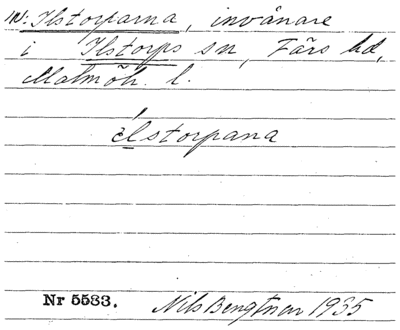 in: Ilstorparna, invånare
i Ilstorps sn, Färs hd,
Malmöh. l.
élstorpana
Nr 5533. Nils Bengtner 1935